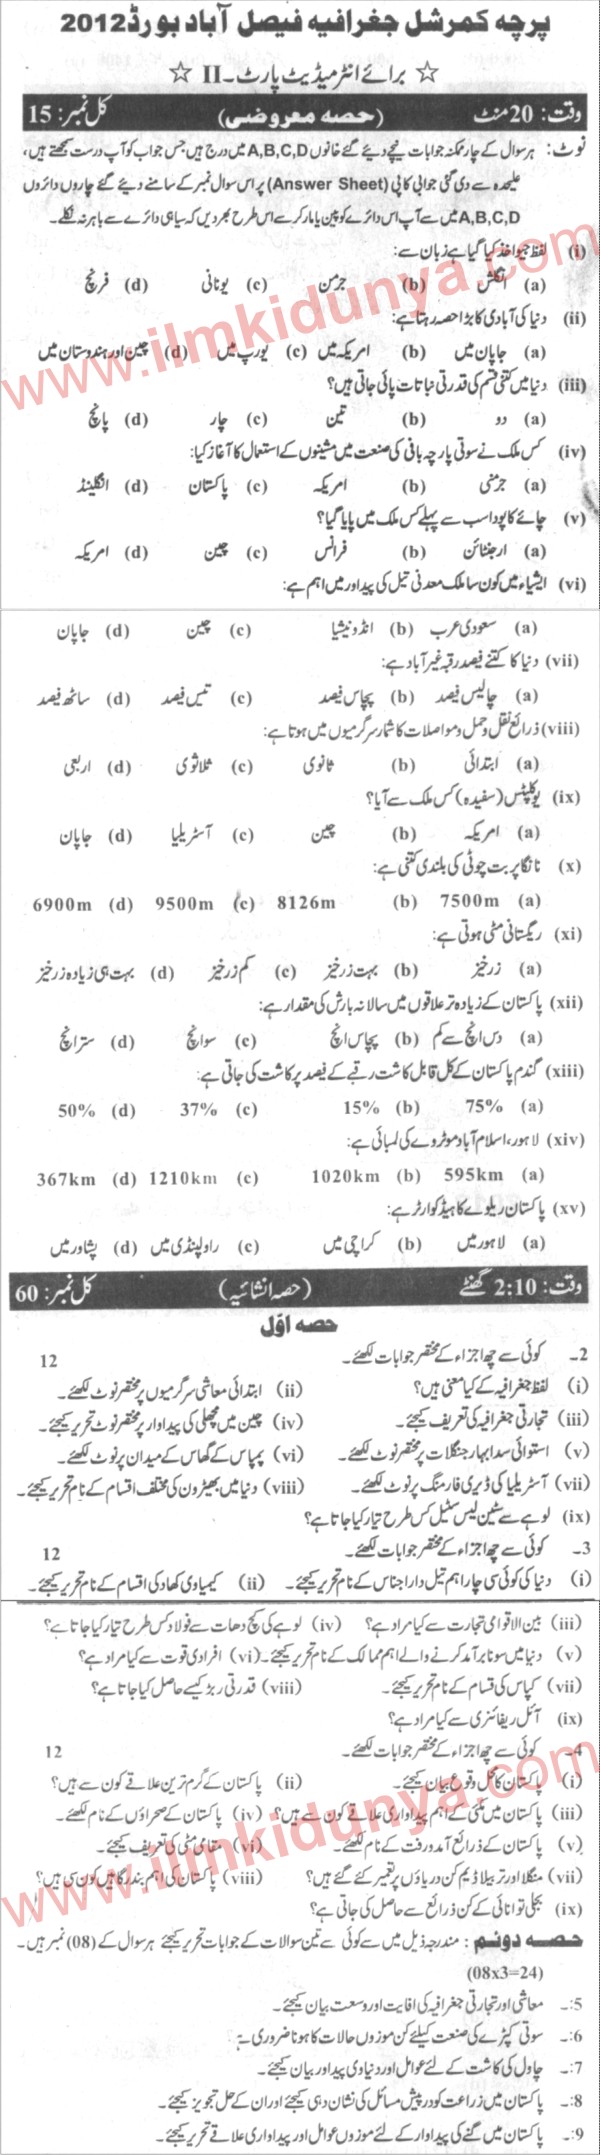 پرچہ کمرشل جغرافیہ فیصل آباد بورڈ 2012
☆ برائے انٹرمیڈیٹ پارٹ۔ II ☆
وقت: 20 منٹ (حصہ معروضی) کل نمبر: 15
نوٹ: ہر سوال کے چار ممکنہ جوابات نیچے دیئے گئے خانوں A,B,C,D میں درج ہیں جس جواب کو آپ درست سمجھتے ہیں،
علیحدہ سے دی گئی جوابی کاپی (Answer Sheet) پر اس سوال نمبر کے سامنے دیئے گئے چاروں دائروں
A,B,C,D میں سے آپ اس دائرے کو پین یا مارکر سے اس طرح بھر دیں کہ سیاہی دائرے سے باہر نہ نکلے۔
(i) لفظ جیو اخذ کیا گیا ہے زبان سے:
(a) انگلش (b) جرمن (c) یونانی (d) فرنچ
(ii) دنیا کی آبادی کا بڑا حصہ رہتا ہے:
(a) جاپان میں (b) امریکہ میں (c) یورپ میں (d) چین اور ہندوستان میں
(iii) دنیا میں کتنی قسم کی قدرتی نباتات پائی جاتی ہیں؟
(a) دو (b) تین (c) چار (d) پانچ
(iv) کس ملک نے سوتی پارچہ بافی کی صنعت میں مشینوں کے استعمال کا آغاز کیا:
(a) جرمنی (b) امریکہ (c) پاکستان (d) انگلینڈ
(v) چائے کا پودا سب سے پہلے کس ملک میں پایا گیا؟
(a) ارجنٹائن (b) فرانس (c) چین (d) امریکہ
(vi) ایشیاء میں کون سا ملک معدنی تیل کی پیداور میں اہم ہے:
(a) سعودی عرب (b) انڈونیشیا (c) چین (d) جاپان
(vii) دنیا کا کتنے فیصد رقبہ غیر آباد ہے:
(a) چالیس فیصد (b) پچاس فیصد (c) تیس فیصد (d) ساٹھ فیصد
(viii) ذرائع نقل و حمل و مواصلات کا شمار سرگرمیوں میں ہوتا ہے:
(a) ابتدائی (b) ثانوی (c) ثلاثوی (d) اربعی
(ix) یوکلپٹس (سفیدہ) کس ملک سے آیا؟
(a) امریکہ (b) چین (c) آسٹریلیا (d) جاپان
(x) نانگا پربت چوٹی کی بلندی کتنی ہے:
(a) 7500m (b) 8126m (c) 9500m (d) 6900m
(xi) ریگستانی مٹی ہوتی ہے:
(a) زرخیز (b) بہت زرخیز (c) کم زرخیز (d) بہت ہی زیادہ زرخیز
(xii) پاکستان کے زیادہ تر علاقوں میں سالانہ بارش کی مقدار ہے:
(a) دس انچ سے کم (b) پچاس انچ (c) سو انچ (d) ستر انچ
(xiii) گندم پاکستان کے کل قابل کاشت رقبے کے فیصد پر کاشت کی جاتی ہے:
(a) 75% (b) 15% (c) 37% (d) 50%
(xiv) لاہور، اسلام آباد موٹر وے کی لمبائی ہے:
(a) 595km (b) 1020km (c) 1210km (d) 367km
(xv) پاکستان ریلوے کا ہیڈ کوارٹر ہے:
(a) لاہور میں (b) کراچی میں (c) راولپنڈی میں (d) پشاور میں
وقت: 2:10 گھنٹے (حصہ انشائیہ) کل نمبر: 60
حصہ اوّل
2۔ کوئی سے چھ اجزاء کے مختصر جوابات لکھئے۔ 12
(i) لفظ جغرافیہ کے کیا معنی ہیں؟ (ii) ابتدائی معاشی سرگرمیوں پر مختصر نوٹ لکھئے۔
(iii) تجارتی جغرافیہ کی تعریف کیجئے۔ (iv) چین میں مچھلی کی پیداوار پر مختصر نوٹ تحریر کیجئے۔
(v) استوائی سدا بہار جنگلات پر مختصر نوٹ لکھئے۔ (vi) پمپاس کے گھاس کے میدان پر نوٹ لکھئے۔
(vii) آسٹریلیا کی ڈیری فارمنگ پر نوٹ لکھئے۔ (viii) دنیا میں بھیڑوں کی مختلف اقسام کے نام تحریر کیجئے۔
(ix) لوہے سے سٹین لیس سٹیل کس طرح تیار کیا جاتا ہے؟
3۔ کوئی سے چھ اجزاء کے مختصر جوابات لکھئے۔ 12
(i) دنیا کی کوئی سی چار اہم تیل دار اجناس کے نام تحریر کیجئے۔ (ii) کیمیاوی کھاد کی اقسام کے نام تحریر کیجئے۔
(iii) بین الاقوامی تجارت سے کیا مراد ہے؟ (iv) لوہے کی کچ دھات سے فولاد کس طرح تیار کیا جاتا ہے؟
(v) دنیا میں سونا برآمد کرنے والے اہم ممالک کے نام تحریر کیجئے۔ (vi) افرادی قوت سے کیا مراد ہے؟
(vii) کپاس کی قسام کے نام تحریر کیجئے۔ (viii) قدرتی ربڑ کیسے حاصل کیا جاتا ہے؟
(ix) آئل ریفائنری سے کیا مراد ہے؟
4۔ کوئی سے چھ اجزاء کے مختصر جوابات لکھئے۔ 12
(i) پاکستان کا محل وقوع بیان کیجئے۔ (ii) پاکستان کے گرم ترین علاقے کون سے ہیں؟
(iii) پاکستان میں مکئی کے اہم پیداواری علاقے کون سے ہیں؟ (iv) پاکستان کے صحراؤں کے نام لکھئے۔
(v) پاکستان کے ذرائع آمد و رفت کے نام لکھئے۔ (vi) مقامی مٹی کی تعریف کیجئے۔
(vii) منگلا اور تربیلا ڈیم کن دریاؤں پر تعمیر کئے گئے ہیں؟ (viii) پاکستان کی اہم بندرگاہیں کون سی ہیں؟
(ix) بجلی توانائی کے کن ذرائع سے حاصل کی جاتی ہے؟
حصہ دوئم : مندرجہ ذیل میں سے کوئی سے تین سوالات کے جوابات تحریر کیجئے ہر سوال کے (08) نمبر ہیں۔
(08x3=24)
5:۔ معاشی اور تجارتی جغرافیہ کی افادیت اور وسعت بیان کیجئے۔
6:۔ سوتی کپڑے کی صنعت کیلئے کن موزوں حالات کا ہونا ضروری ہے؟
7:۔ چاول کی کاشت کے لئے عوامل اور دنیاوی پیداور بیان کیجئے۔
8:۔ پاکستان میں زراعت کو درپیش مسائل کی نشان دہی کیجئے اور ان کے حل تجویز کیجئے۔
9:۔ پاکستان میں گنے کی پیداوار کے لئے موزوں عوامل اور پیداواری علاقے تحریر کیجئے۔
www.ilmkidunya.com
www.ilmkidunya.com